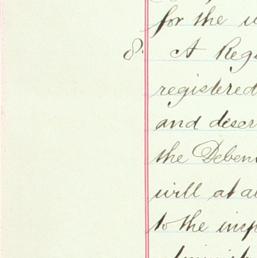 for the
8. A Reg
registered
and descr
the Deben
will at a
to the insp